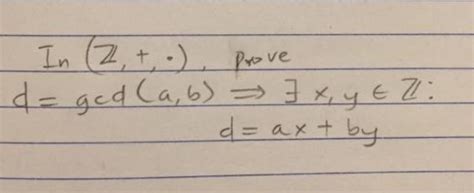 In (ℤ, +, ·), prove
d = gcd(a, b) ⟹ ∃ x, y ∈ ℤ:
d = ax + by